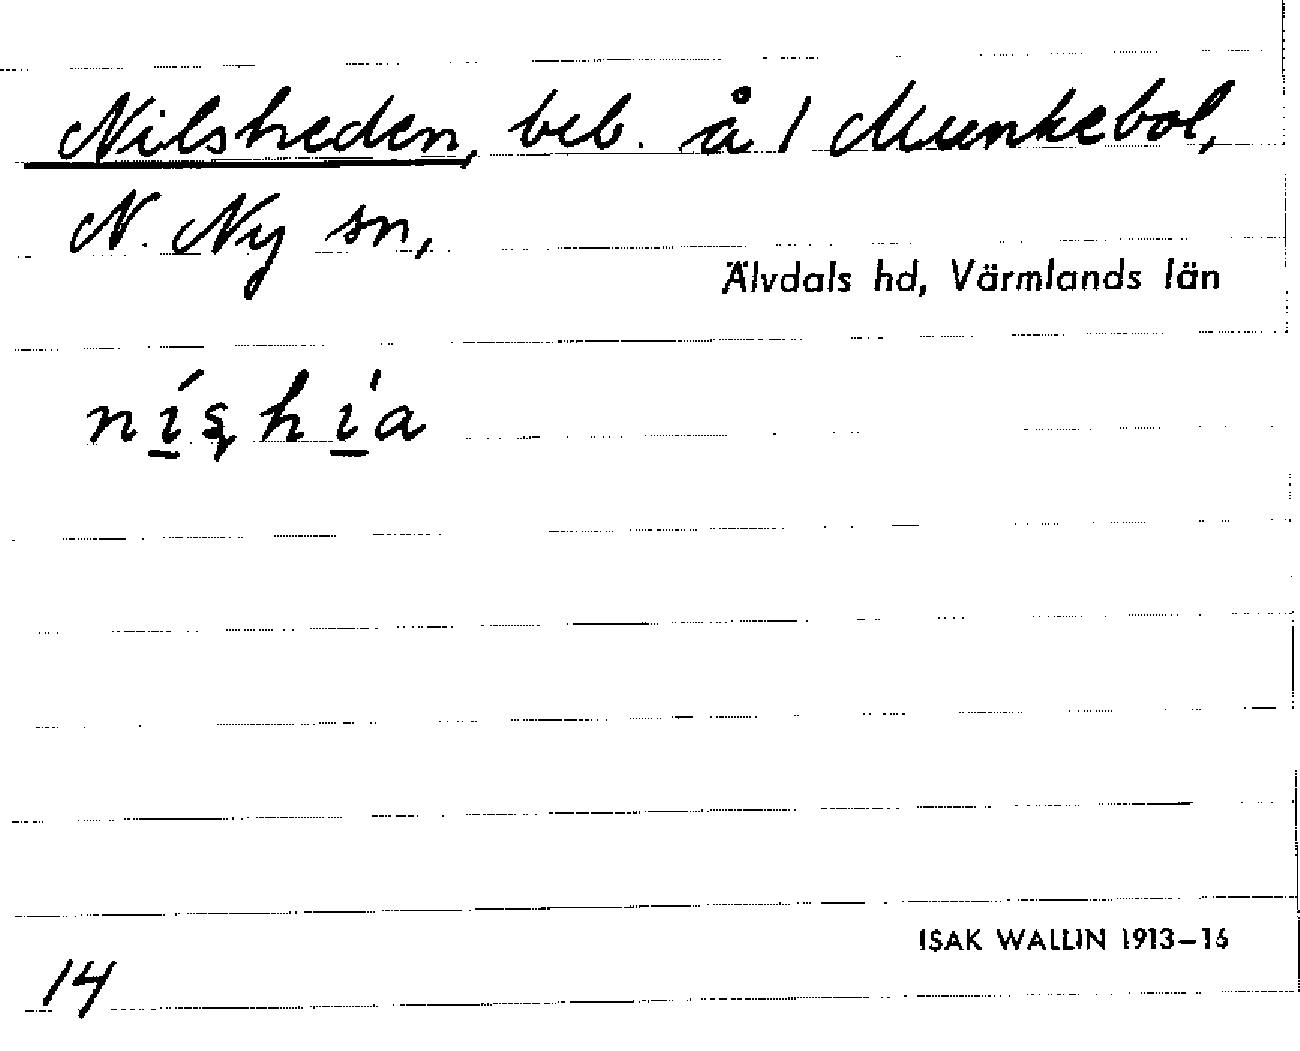 Nilsheden, beb. å 1 Munkebol,
N. Ny sn,
Älvdals hd, Värmlands län
níṣhı̱́a
ISAK WALLIN 1913–16
14